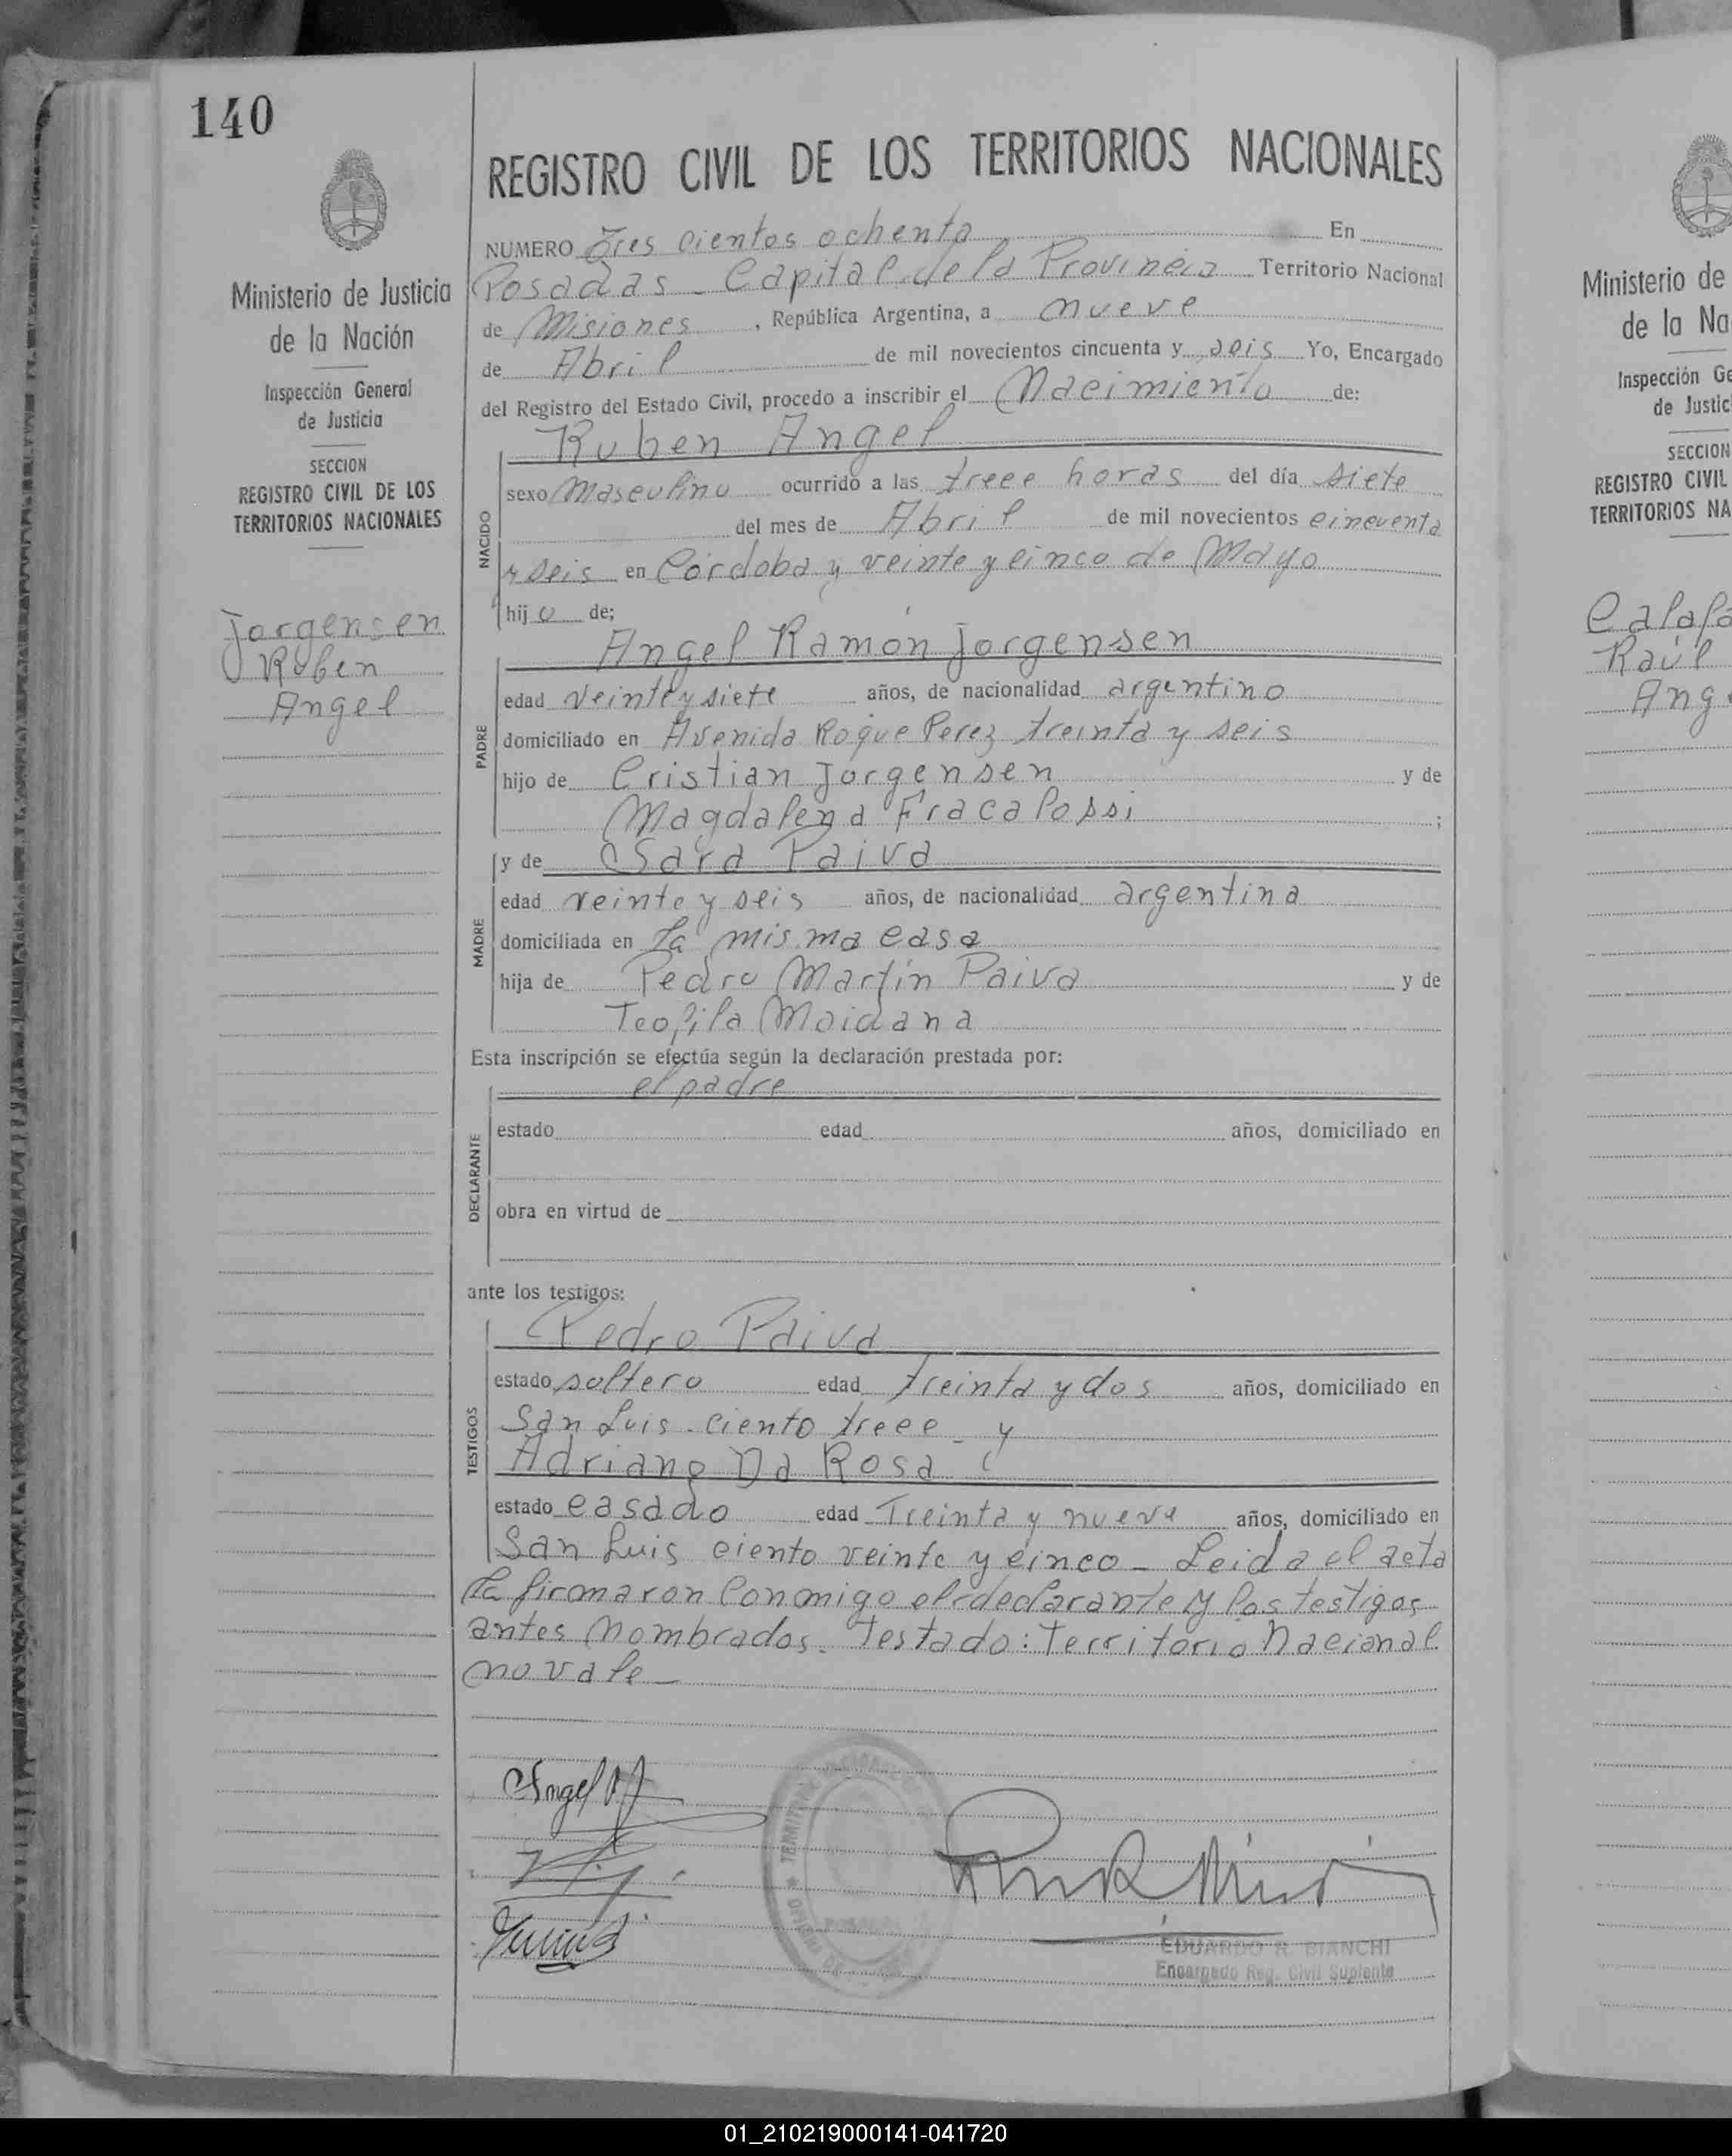 140
Ministerio de Justicia
de la Nación
Inspección General
de Justicia
SECCION
REGISTRO CIVIL DE LOS
TERRITORIOS NACIONALES
Jorgensen
Ruben
Angel
REGISTRO CIVIL DE LOS TERRITORIOS NACIONALES
NUMERO Tres cientos ochenta En
Posadas - Capital de la Provincia Territorio Nacional
de Misiones, República Argentina, a nueve
de Abril de mil novecientos cincuenta y seis Yo, Encargado
del Registro del Estado Civil, procedo a inscribir el Nacimiento de:
Ruben Angel
NACIDO
sexo Masculino ocurrido a las trece horas del día siete
del mes de Abril de mil novecientos cincuenta
y seis en Córdoba y veinte y cinco de Mayo
hijo de;
Angel Ramón Jorgensen
PADRE
edad veinte y siete años, de nacionalidad argentino
domiciliado en Avenida Roque Perez treinta y seis
hijo de Cristian Jorgensen y de
Magdalena Fracalossi ;
y de Sara Paiva
MADRE
edad veinte y seis años, de nacionalidad argentina
domiciliada en La misma casa
hija de Pedro Martín Paiva y de
Teofila Maidana
Esta inscripción se efectúa según la declaración prestada por:
el padre
DECLARANTE
estado edad años, domiciliado en
obra en virtud de
ante los testigos:
Pedro Paiva
TESTIGOS
estado soltero edad treinta y dos años, domiciliado en
San Luis - ciento trece - y
Adriano Da Rosa
estado casado edad Treinta y nueve años, domiciliado en
San Luis ciento veinte y cinco - Leida el acta
la firmaron conmigo el declarante y los testigos
antes nombrados. Testado: Territorio Nacional
no vale -
Angel
EDUARDO R. BIANCHI
Encargado Reg. Civil Suplente
Ministerio de
de la Na
Inspección Ge
de Justic
SECCION
REGISTRO CIVIL
TERRITORIOS NA
Raúl
Ang
01_210219000141-041720